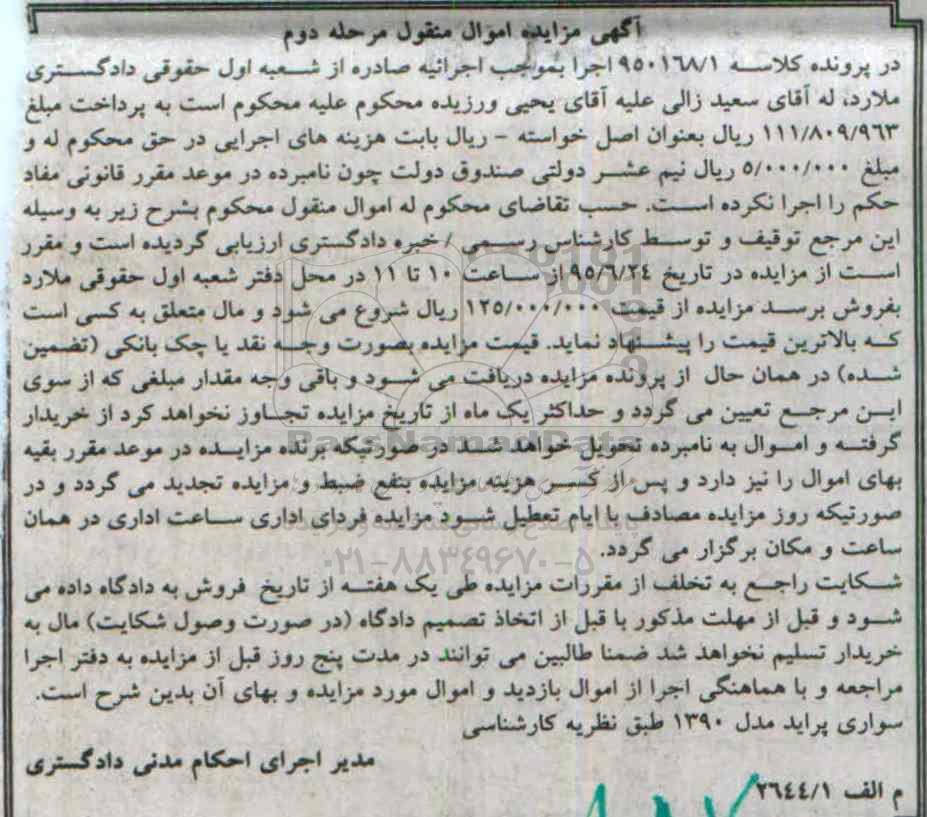 آگهی مزایده اموال منقول مرحله دوم
در پرونده کلاسه ۹۵۰۱۶۸/۱ اجرا بموجب اجرائیه صادره از شعبه اول حقوقی دادگستری
ملارد، له آقای سعید زالی علیه آقای یحیی ورزیده محکوم علیه محکوم است به پرداخت مبلغ
۱۱۱/۸۰۹/۹۶۳ ریال بعنوان اصل خواسته - ریال بابت هزینه های اجرایی در حق محکوم له و
مبلغ ۵/۰۰۰/۰۰۰ ریال نیم عشر دولتی صندوق دولت چون نامبرده در موعد مقرر قانونی مفاد
حکم را اجرا نکرده است. حسب تقاضای محکوم له اموال منقول محکوم بشرح زیر به وسیله
این مرجع توقیف و توسط کارشناس رسمی / خبره دادگستری ارزیابی گردیده است و مقرر
است از مزایده در تاریخ ۹۵/۶/۲۴ از ساعت ۱۰ تا ۱۱ در محل دفتر شعبه اول حقوقی ملارد
بفروش برسد مزایده از قیمت ۱۲۵/۰۰۰/۰۰۰ ریال شروع می شود و مال متعلق به کسی است
که بالاترین قیمت را پیشنهاد نماید. قیمت مزایده بصورت وجه نقد یا چک بانکی (تضمین
شده) در همان حال از پرونده مزایده دریافت می شود و باقی وجه مقدار مبلغی که از سوی
این مرجع تعیین می گردد و حداکثر یک ماه از تاریخ مزایده تجاوز نخواهد کرد از خریدار
گرفته و اموال به نامبرده تحویل خواهد شد در صورتیکه برنده مزایده در موعد مقرر بقیه
بهای اموال را نیز دارد و پس از کسر هزینه مزایده بنفع ضبط و مزایده تجدید می گردد و در
صورتیکه روز مزایده مصادف با ایام تعطیل شود مزایده فردای اداری ساعت اداری در همان
ساعت و مکان برگزار می گردد.
شکایت راجع به تخلف از مقررات مزایده طی یک هفته از تاریخ فروش به دادگاه داده می
شود و قبل از مهلت مذکور با قبل از اتخاذ تصمیم دادگاه (در صورت وصول شکایت) مال به
خریدار تسلیم نخواهد شد ضمنا طالبین می توانند در مدت پنج روز قبل از مزایده به دفتر اجرا
مراجعه و با هماهنگی اجرا از اموال بازدید و اموال مورد مزایده و بهای آن بدین شرح است.
سواری پراید مدل ۱۳۹۰ طبق نظریه کارشناسی
مدیر اجرای احکام مدنی دادگستری
م الف ۲۶۴۴/۱
ParsNamadData
۰۲۱-۸۸۳۴۹۶۷۰-۵